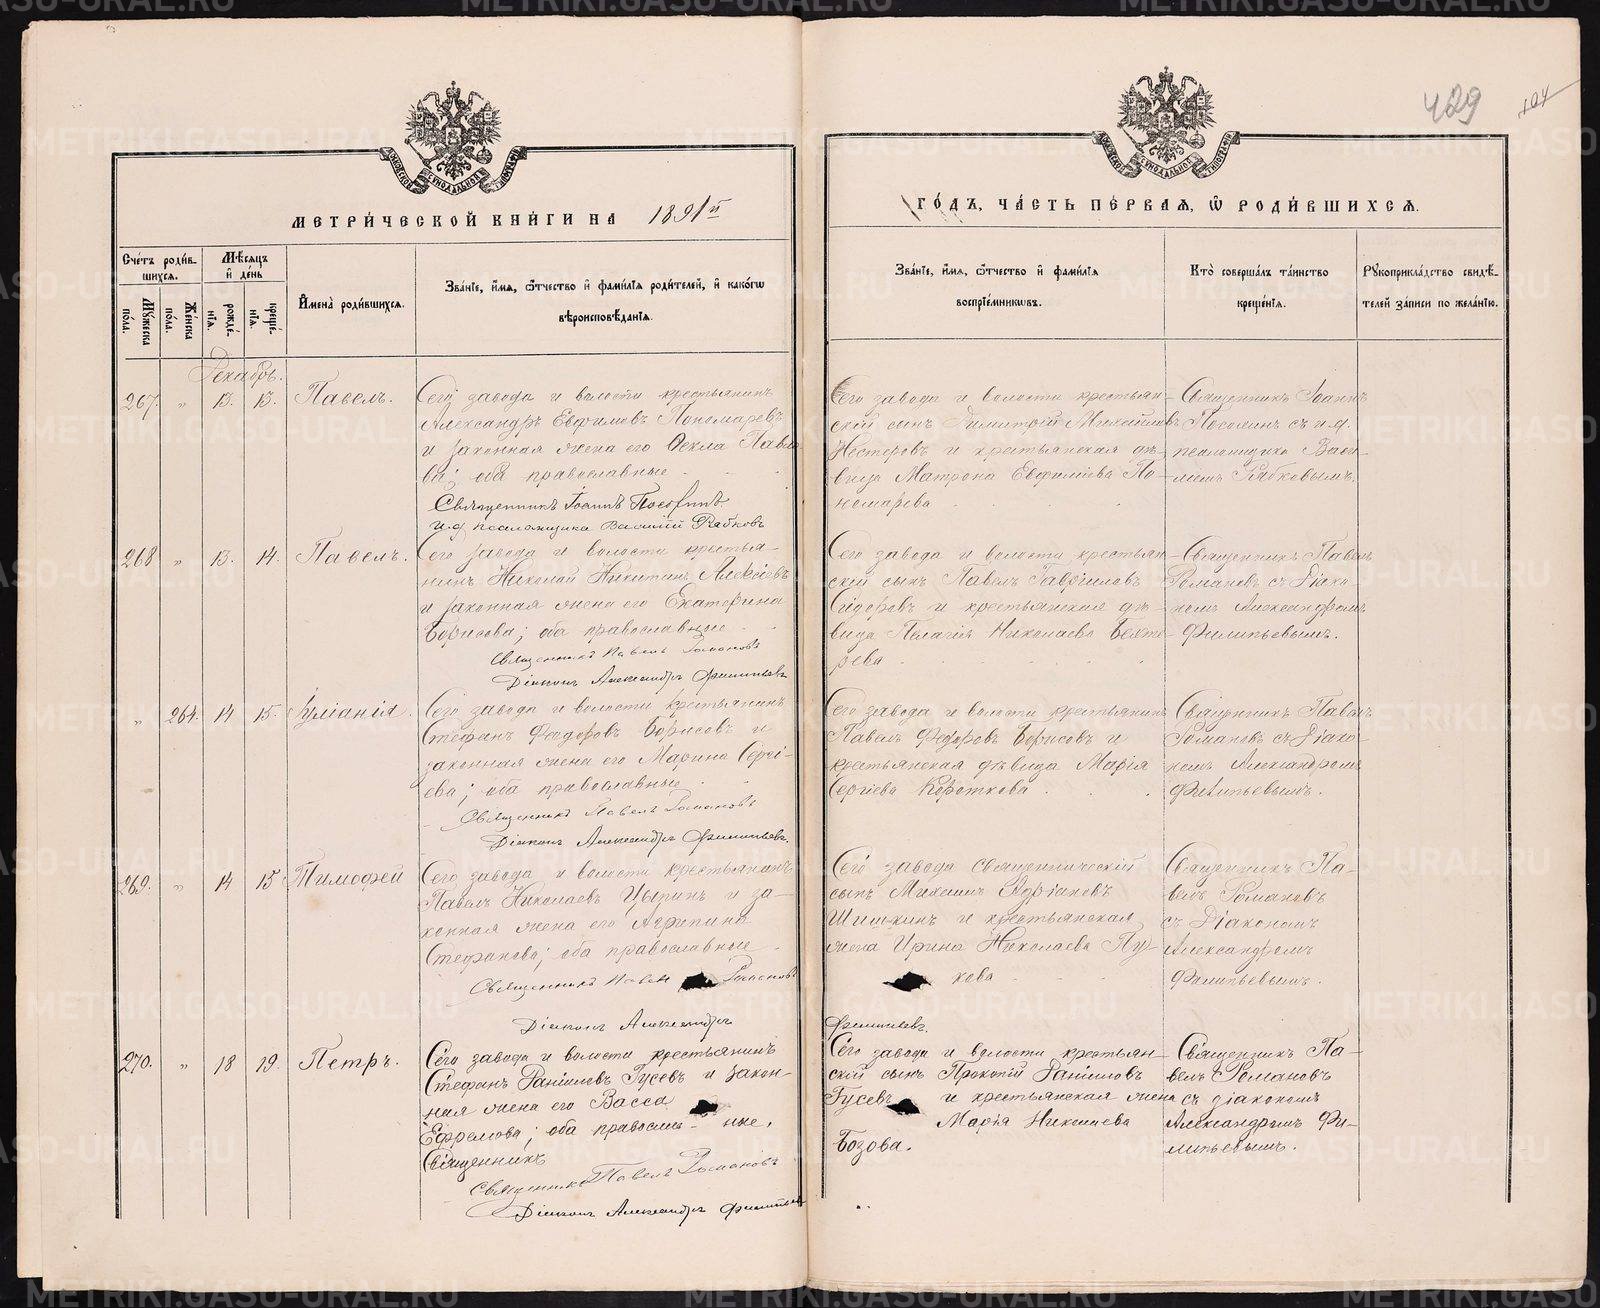 429
МЕТРИ́ЧЕСКОЙ КНИ́ГИ НА 1891й
ГО́ДЪ, ЧА́СТЬ ПЕ́РВАЯ, Ѽ РОДИ́ВШИХСЯ.
Сче́тъ роди́вшихся.
Мꙋ́жеска по́ла.
Же́нска по́ла.
Мѣ́сяцъ и҆ де́нь
рожде́нїя.
креще́нїя.
И҆мена̀ роди́вшихся.
Зва́нїе, и҆́мя, ѻ҆́тчество и҆ фами́лїя роди́телей, и҆ како́гѡ
вѣроисповѣ́данїя.
Зва́нїе, и҆́мя, ѻ҆́тчество и҆ фами́лїя
воспрїе́мниковъ.
Кто̀ соверша́лъ та́инство
креще́нїя.
Рꙋкоприкла́дство свидѣ́-
телей за́писи по жела́нїю.
Декабрь.
267. „ 13. 13. Павелъ.
Сего завода и волости крестьянинъ
Александръ Евфимовъ Пономаревъ
и законная жена его Ѳекла Павло
ва; оба православные
Священникъ Іоаннъ
и.д. псаломщика Василій Рябковъ
Сего завода и волости крестьян-
скій сынъ Димитрій Михайловъ
Нестеровъ и крестьянская дѣ-
вица Матрона Евфиміева По-
номарева
Священникъ Іоаннъ
съ и.д.
псаломщика Васи-
ліемъ Рябковымъ.
268 „ 13. 14. Павелъ.
Сего завода и волости крестья-
нинъ Николай Никитинъ Алексѣевъ
и законная жена его Екатерина
Борисова; оба православные
Священникъ Павелъ Романовъ
Діаконъ Александръ Филипьевъ
Сего завода и волости крестьян-
скій сынъ Павелъ Гавріиловъ
Сидоровъ и крестьянская дѣ-
вица Пелагія Николаева Бехте-
рева
Священникъ Павелъ
Романовъ съ Діако-
номъ Александромъ
Филипьевымъ.
„ 264. 14 15. Іуліанія.
Сего завода и волости крестьянинъ
Стефанъ Федоровъ Борисовъ и
законная жена его Марина Сергі-
ева; оба православные
Священникъ Павелъ Романовъ
Діаконъ Александръ Филипьевъ.
Сего завода и волости крестьянинъ
Павелъ Федоровъ Борисовъ и
крестьянская дѣвица Марія
Сергіева Короткова
Священникъ Павелъ
Романовъ съ Діако-
номъ Александромъ
Филипьевымъ.
269. „ 14 15 Тимофей
Сего завода и волости крестьянинъ
Павелъ Николаевъ Цыпинъ и за-
конная жена его Агрипина
Стефанова; оба православные
Священникъ Павел Романовъ
Діаконъ Александръ
Филипьевъ.
Сего завода священническій
сынъ Михаилъ Адріановъ
Шишкинъ и крестьянская
жена Ирина Николаева Пу-
кова
Священникъ Па-
велъ Романовъ
съ Діакономъ
Александромъ
Филипьевымъ.
270. „ 18 19. Петръ.
Сего завода и волости крестьянинъ
Стефанъ Даніиловъ Гусевъ и закон-
ная жена его Васса
Ефремова; оба православ- ные.
Священникъ
Священникъ Павелъ Романовъ
Діаконъ Александръ Филипьевъ
Сего завода и волости крестьян-
скій сынъ Прокопій Даніиловъ
Гусевъ и крестьянская жена
Марія Николаева
Бозова.
Священникъ Па-
велъ Романовъ
съ діакономъ
Александромъ Фи-
липьевымъ.
METRIKI.GASO-URAL.RU